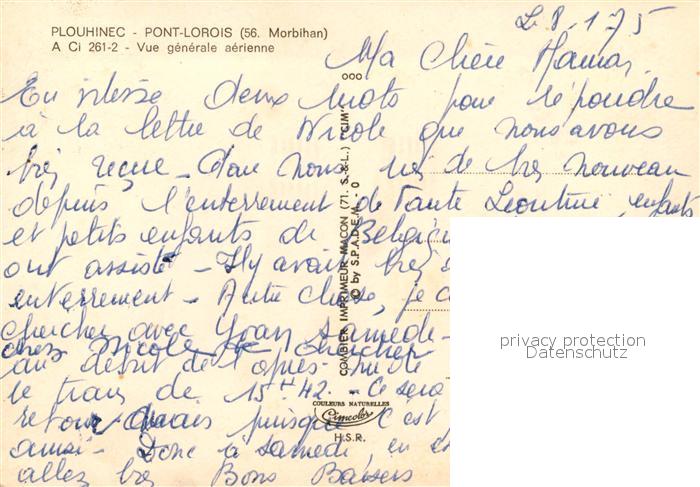 PLOUHINEC - PONT-LOROIS (56. Morbihan)
A Ci 261-2 - Vue générale aérienne
Le 8.1.75
Ma Chère Maman,
En vitesse deux mots pour répondre
à la lettre de Nicole que nous avons
reçue - chez nous de nouveau
depuis l'enterrement de Tante Léontine, enfants
et petits enfants de Belgique
ont assisté - Il y avait très
enterrement - Autre chose, je
chercher avec Yvan samedi
chez Nicole chercher
au début de l'après-midi
le train de 15H42 - Ce sera
retour puisque c'est
ainsi - Donc à samedi, en
allez Bons Baisers
COMBIER IMPRIMEUR MACON (71. S.-&-L.) "CIM"
© by S.P.A.D.E.M. - 0
COULEURS NATURELLES
Cimcolor
H.S.R.
privacy protection
Datenschutz